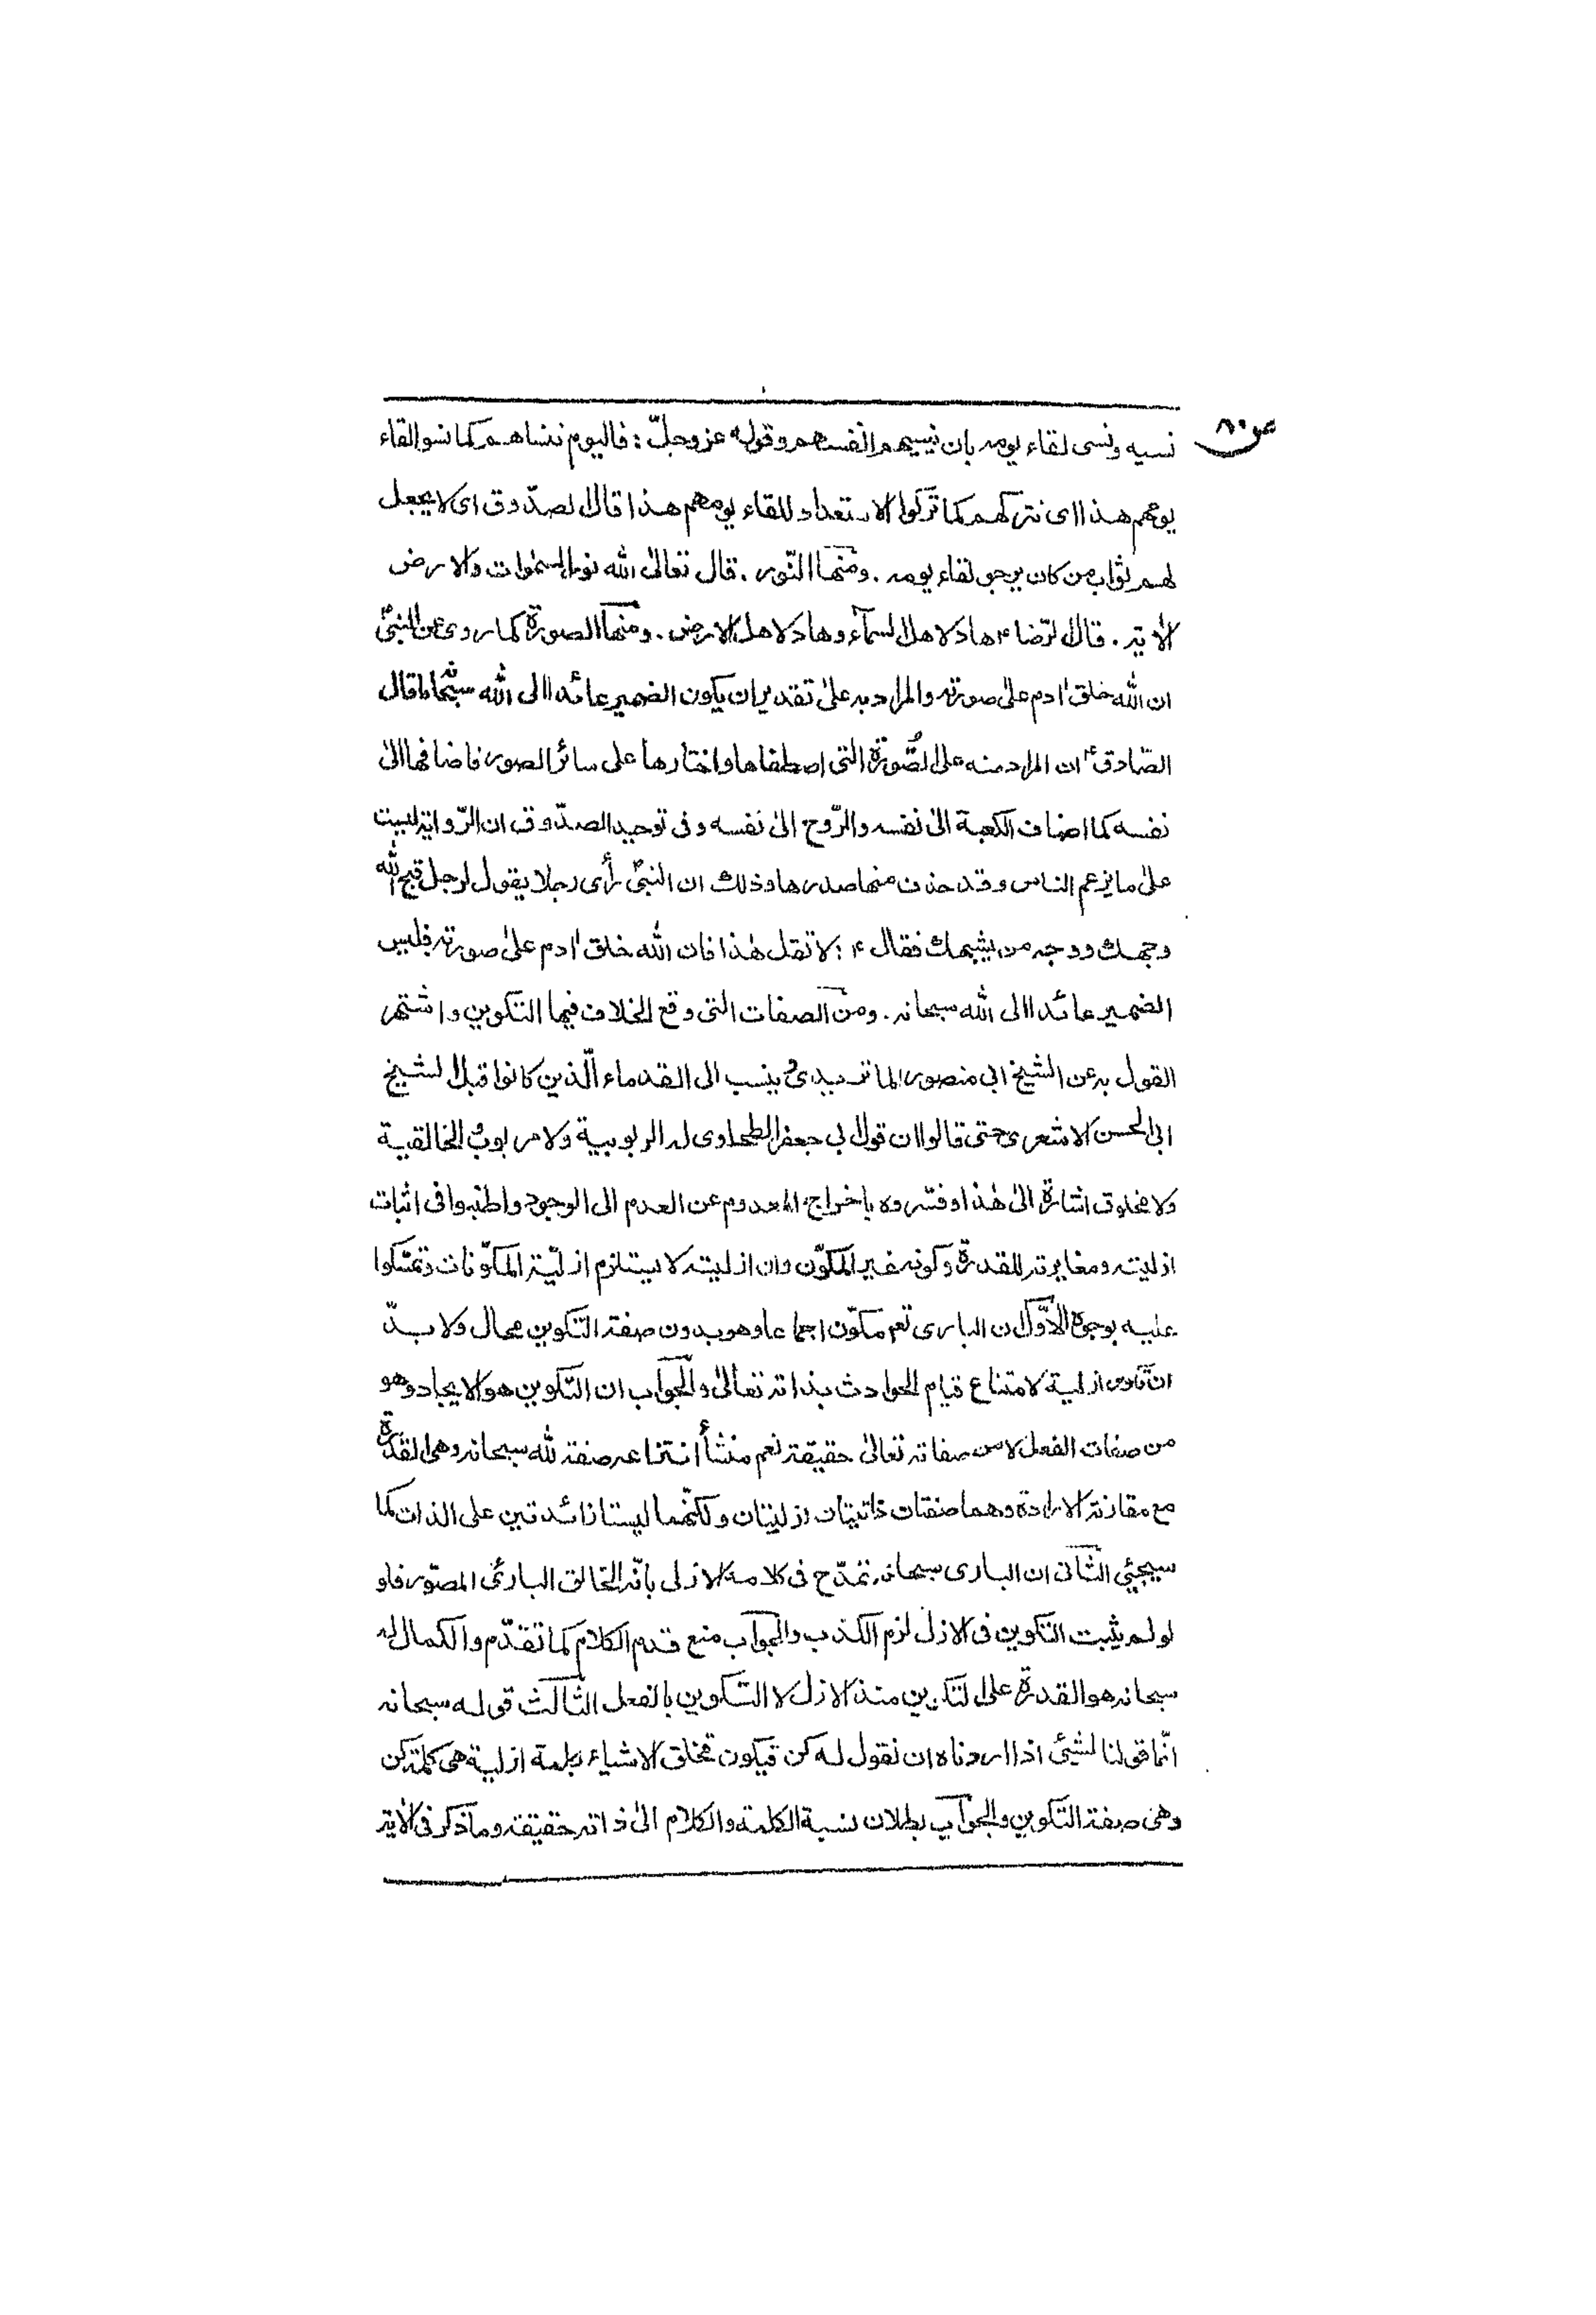 ص ٨٠
نسيه ونسى لقاء يومه بان ينسيهم انفسهم وقوله عز وجلّ : فاليوم ننساهم كما نسوا لقاء
يومهم هذا اى نتركهم كما تركوا الاستعداد للقاء يومهم هذا قال الصدّوق اى لا يجعل
لهم ثواب من كان يرجو لقاء يومه . ومنها النّور . قال تعالىٰ الله نور السمٰوات والارض
الاٰية . قال الرّضا ع هاد لاهل السمآء وهاد لاهل الارض . ومنها الصورة كما روى عن النبىّ
ان الله خلق اٰدم علىٰ صورته والمراد به علىٰ تقدير ان يكون الضمير عائدا الى الله سبحانه ما قال
الصّادق ع ان المراد منه على الصُّورة التى اصطفاها واختارها على سائر الصور فاضافها الىٰ
نفسه كما اضاف الكعبة الىٰ نفسه والرّوح الىٰ نفسه وفى توحيد الصدّوق ان الرّواية ليست
علىٰ ما يزعم الناس وقد حذف منها صدرها وذلك ان النبىّ رأى رجلا يقول لرجل قبح الله
وجهك ووجه من يشبهك فقال ع : لا تقل هٰذا فان الله خلق اٰدم علىٰ صورته فليس
الضمير عائدا الى الله سبحانه . ومن الصفات التى وقع الخلاف فيها التكوين واشتهر
القول به عن الشيخ ابى منصور الماتريدى وينسب الى القدماء الّذين كانوا قبل الشيخ
ابى الحسن الاشعرى حتى قالوا ان قول ابى جعفر الطحاوى له الربوبية ولا مربوب والخالقية
ولا مخلوق اشارة الىٰ هٰذا وفسّروه باخراج المعدوم عن العدم الى الوجود واطنبوا فى اثبات
ازليته ومغايرته للقدرة وكونه غير المكوّن وان ازليته لا يستلزم ازليّة المكوّنات وتمسّكوا
عليه بوجوه الاوّل ان البارى تعم مكوّن اجماعا وهو بدون صفة التّكوين محال ولا بدّ
ان تكون ازلية لامتناع قيام الحوادث بذاته تعالىٰ والجواب ان التّكوين هو الايجاد وهو
من صفات الفعل لا من صفاته تعالىٰ حقيقة نعم منشأ انتزاعه صفة لله سبحانه وهى القدرة
مع مقارنة الارادة وهما صفتان ذاتيتان ازليتان ولكنّهما ليستا زائدتين على الذات كما
سيجئي الثّانى ان البارى سبحانه تمدّح فى كلامه الازلى بانّه الخالق البارئ المصوّر فلو
لو لم يثبت التكوين فى الازل لزم الكذب والجواب منع قدم الكلام كما تقدّم والكمال له
سبحانه هو القدرة على التكوين منذ الازل لا التكوين بالفعل الثّالث قوله سبحانه
انّما قولنا لشيئ اذا اردناه ان نقول له كن فيكون فخلق الاشياء بكلمة ازلية هى كلمة كن
وهى صفة التكوين والجواب بطلان نسبة الكلمة والكلام الىٰ ذاته حقيقة وما ذكر فى الاٰية